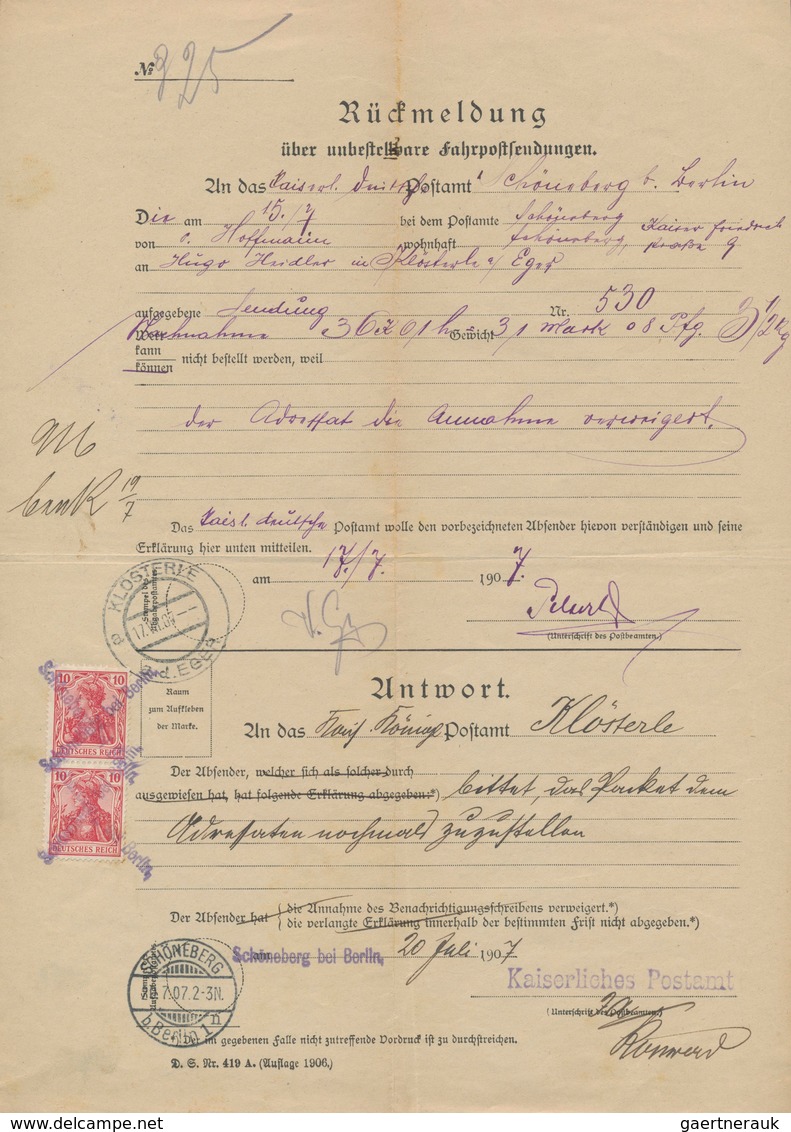 № 225
Rückmeldung
über unbestellbare Fahrpostsendungen.
An das Kaiserl. deutsche Postamt Schöneberg b. Berlin
Die am 15./7 bei dem Postamte Schöneberg
von O. Hoffmann wohnhaft Schöneberg, Kaiser Friedrich straße 9
an Hugo Heidler in Klösterle a/ Eger
aufgegebene Sendung Nr. 530
Wert Nachnahme 36 K 01 h Gewicht 31 Mark 08 Pfg. 3 1/2 Kg
kann
können nicht bestellt werden, weil
der Adressat die Annahme verweigert.
19/7
Das Kaisl. deutsche Postamt wolle den vorbezeichneten Absender hievon verständigen und seine
Erklärung hier unten mitteilen.
am 17./7. 1907.
KLÖSTERLE
a. d. EGER
Stempel des Abgabepostamtes
(Unterschrift des Postbeamten.)
Antwort.
Raum
zum Aufkleben
der Marke.
10 10
DEUTSCHES REICH
Schöneberg bei Berlin,
10 10
DEUTSCHES REICH
Schöneberg bei Berlin,
Schöneberg bei Berlin,
An das Kais. Königl Postamt Klösterle
Der Absender, welcher sich als solcher durch
ausgewiesen hat, hat folgende Erklärung abgegeben:*) bittet, das Packet dem
Adressaten nochmals zuzustellen
Der Absender hat { die Annahme des Benachrichtigungsschreibens verweigert.*)
die verlangte Erklärung innerhalb der bestimmten Frist nicht abgegeben.*)
Schöneberg bei Berlin, am 20 Juli 1907
SCHÖNEBERG
7.07.2-3N.
b. Berlin 1 n
Kaiserliches Postamt
(Unterschrift des Postbeamten.)
*) Der im gegebenen Falle nicht zutreffende Vordruck ist zu durchstreichen.
D. S. Nr. 419 A. (Auflage 1906.)
gaertnerauk